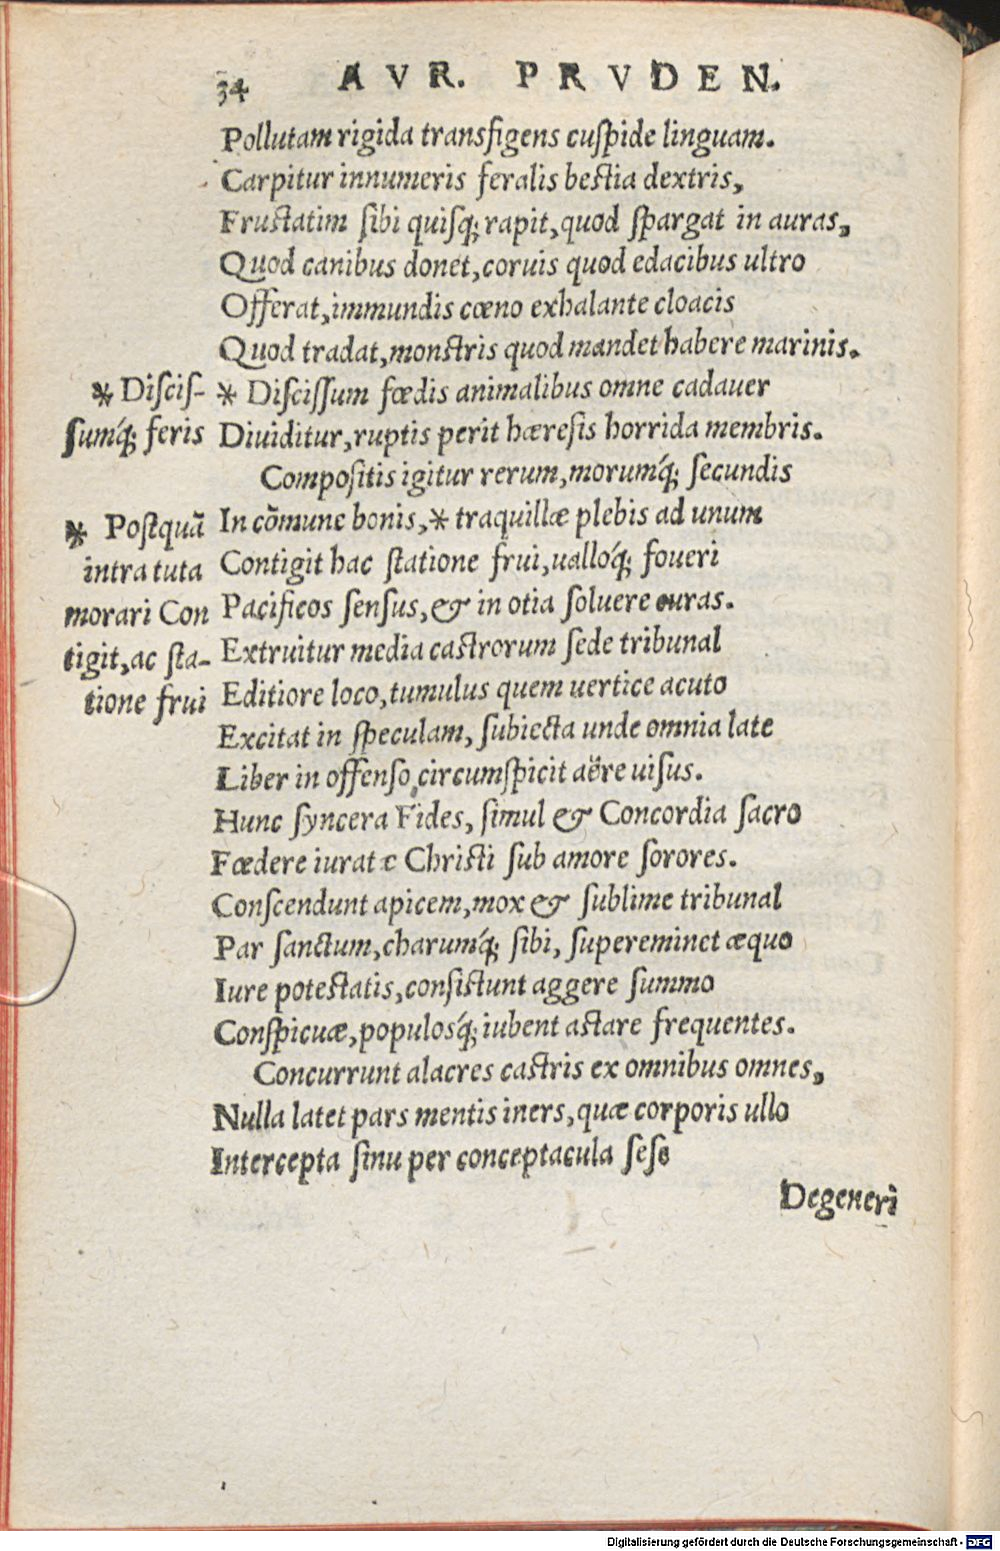 34 AVR. PRVDEN.
Pollutam rigida transfigens cuſpide linguam.
Carpitur innumeris feralis beſtia dextris,
Fruſtatim ſibi quiſq; rapit, quod ſpargat in auras,
Quod canibus donet, coruis quod edacibus ultro
Offerat, immundis cœno exhalante cloacis
Quod tradat, monſtris quod mandet habere marinis.
* Diſciſſum fœdis animalibus omne cadauer
Diuiditur, ruptis perit hæreſis horrida membris.
Compoſitis igitur rerum, morumq́; ſecundis
In cōmune bonis, * traquillæ plebis ad unum
Contigit hac ſtatione frui, ualloq́; foueri
Pacificos ſenſus, & in otia ſoluere curas.
Extruitur media caſtrorum ſede tribunal
Editiore loco, tumulus quem uertice acuto
Excitat in ſpeculam, ſubiecta unde omnia late
Liber in offenſo circumſpicit aëre uiſus.
Hunc ſyncera Fides, ſimul & Concordia ſacro
Fœdere iuratæ Chriſti ſub amore ſorores.
Conſcendunt apicem, mox & ſublime tribunal
Par ſanctum, charumq́; ſibi, ſupereminet æquo
Iure poteſtatis, conſiſtunt aggere ſummo
Conſpicuæ, populosq́; iubent aſtare frequentes.
Concurrunt alacres caſtris ex omnibus omnes,
Nulla latet pars mentis iners, quæ corporis ullo
Intercepta ſinu per conceptacula ſeſe
Degeneri
* Diſciſ-
ſumq́; feris
* Poſtquā
intra tuta
morari Con
tigit, ac ſta-
tione frui
Digitalisierung gefördert durch die Deutsche Forschungsgemeinschaft - DFG